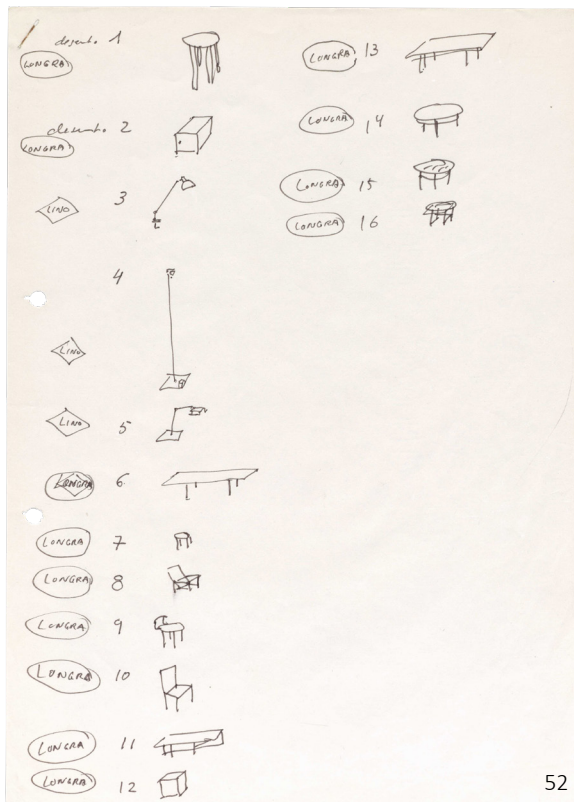 desenho 1
LONGRA
desenho 2
LONGRA
3
LINO
4
LINO
LINO
5
LONGRA 6
LONGRA 7
LONGRA 8
LONGRA 9
LONGRA 10
LONGRA 11
LONGRA 12
LONGRA 13
LONGRA 14
LONGRA 15
LONGRA 16
52